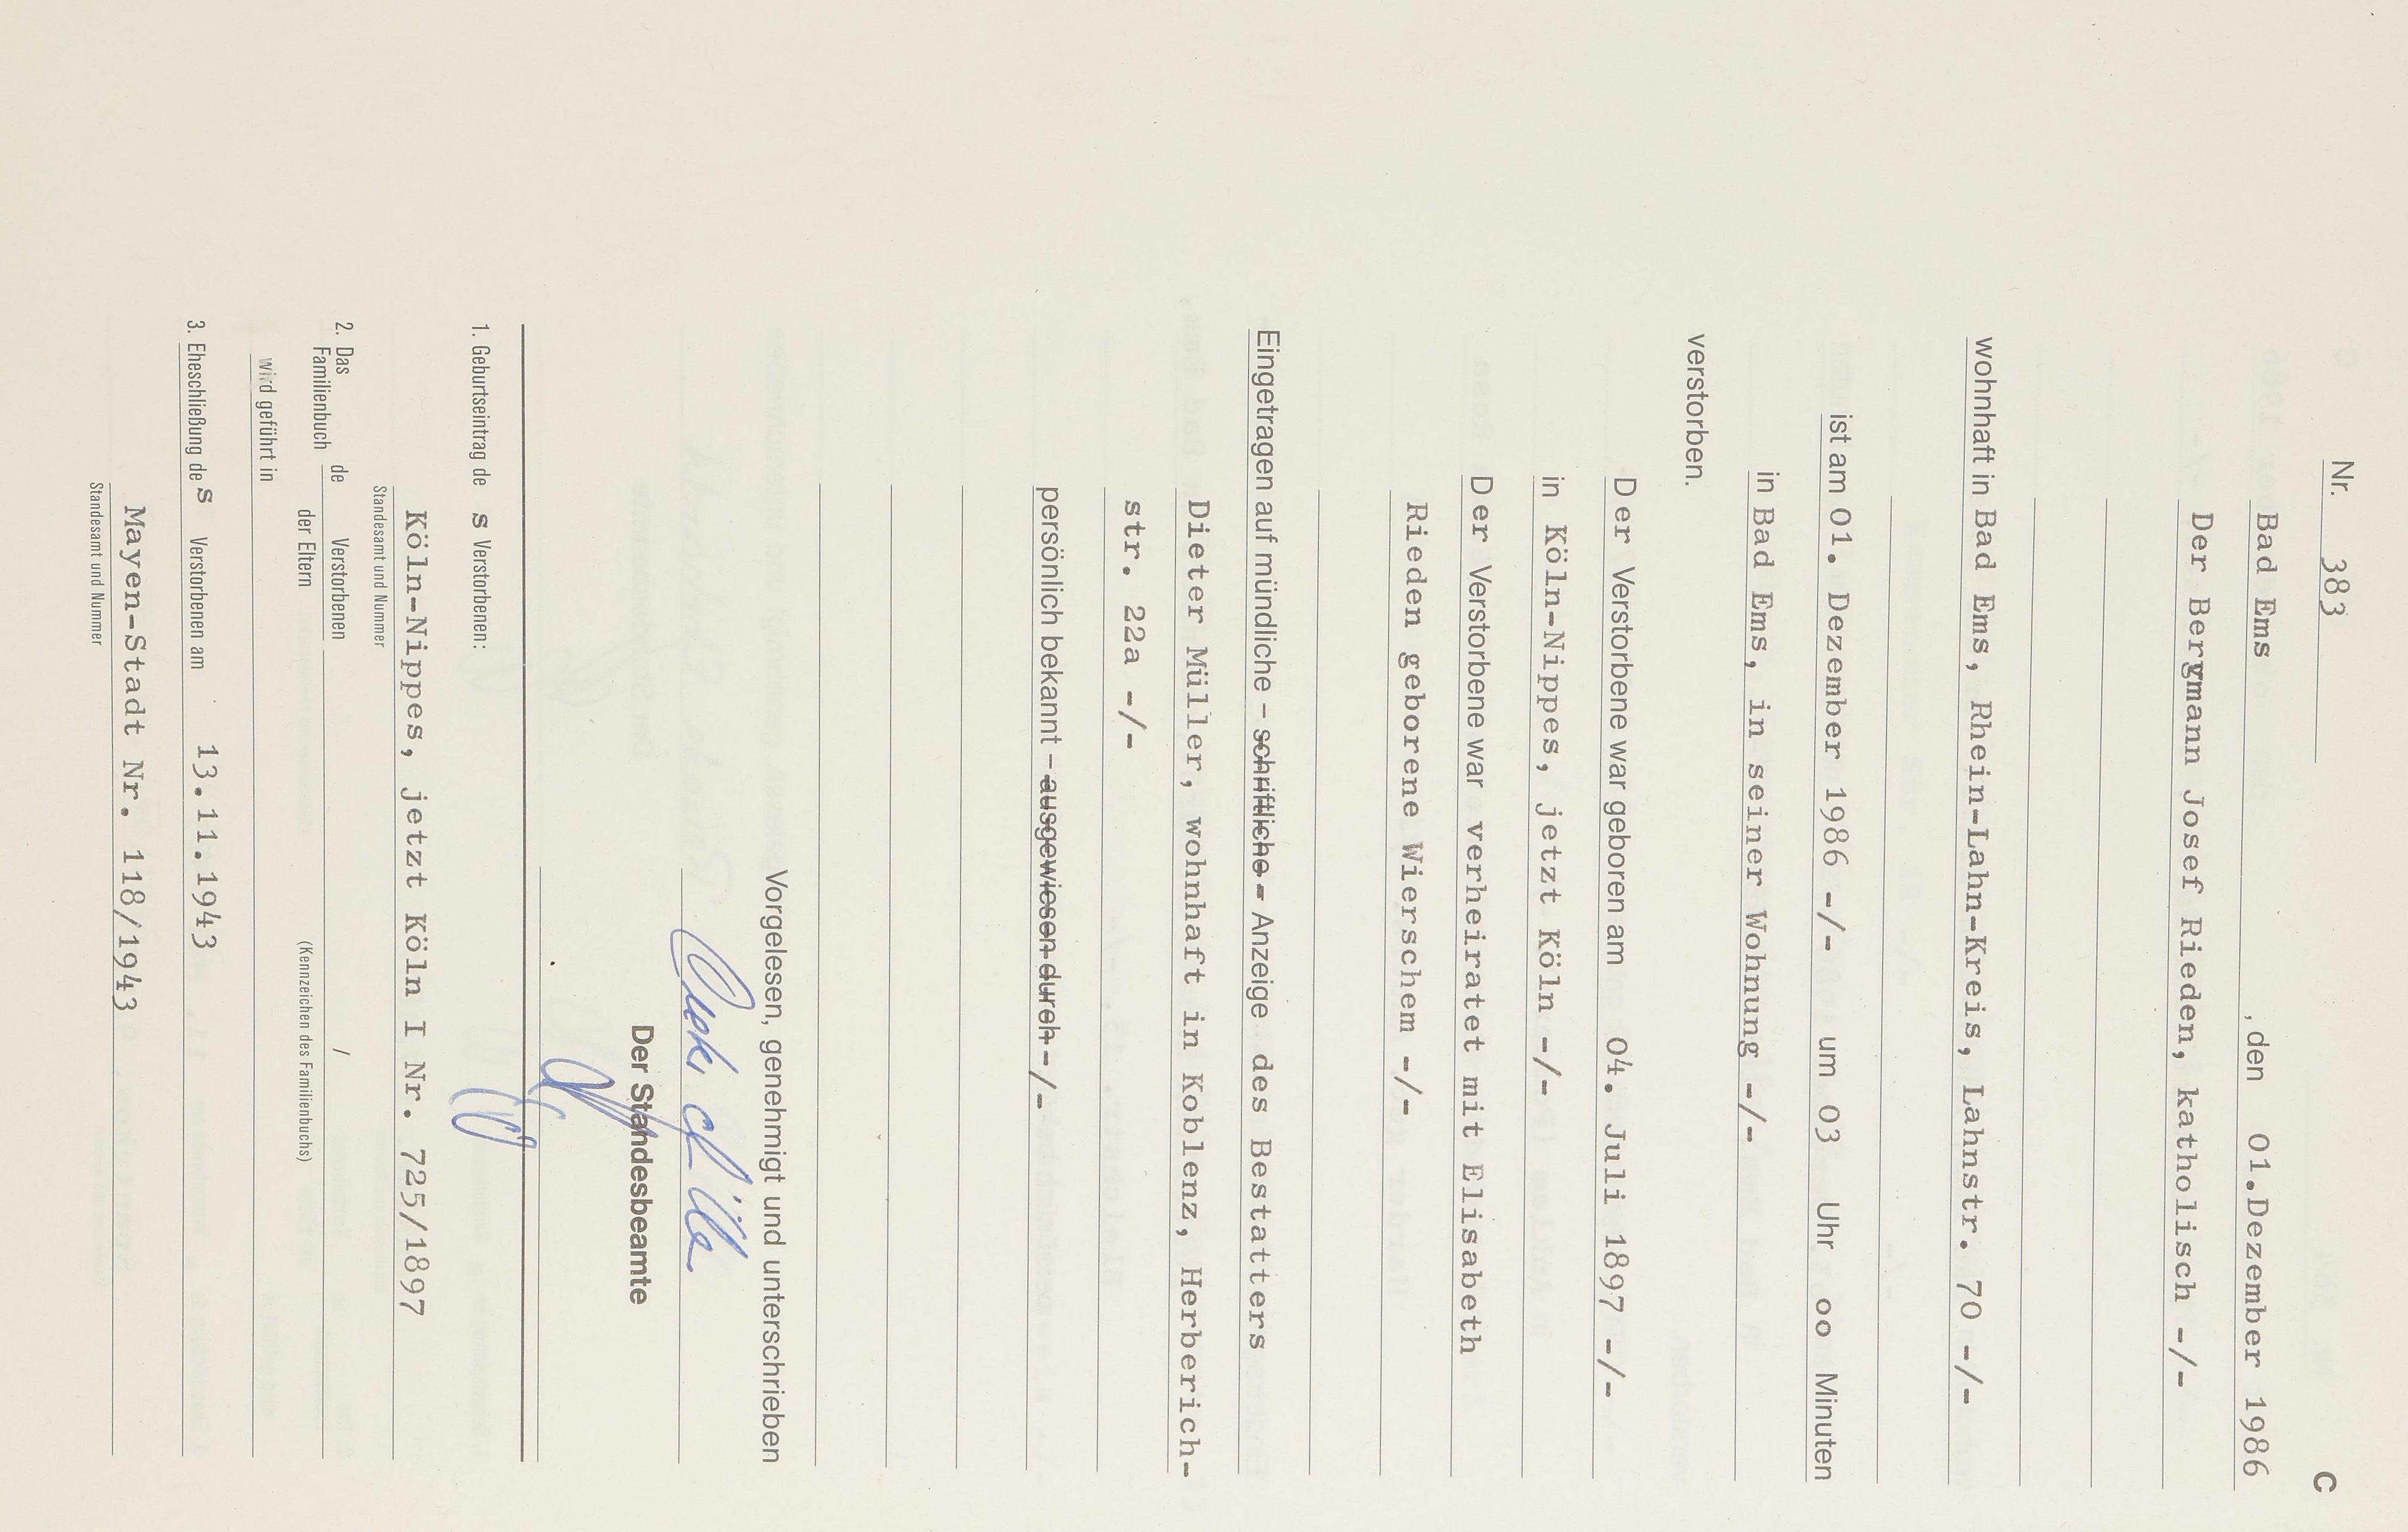 C
Nr. 383
Bad Ems , den 01.Dezember 1986
Der Bergmann Josef Rieden, katholisch -/-
wohnhaft in Bad Ems, Rhein-Lahn-Kreis, Lahnstr. 70 -/-
ist am 01. Dezember 1986 -/- um 03 Uhr oo Minuten
in Bad Ems, in seiner Wohnung -/-
verstorben.
Der Verstorbene war geboren am 04. Juli 1897 -/-
in Köln-Nippes, jetzt Köln -/-
Der Verstorbene war verheiratet mit Elisabeth
Rieden geborene Wierschem -/-
Eingetragen auf mündliche – schriftliche – Anzeige des Bestatters
Dieter Müller, wohnhaft in Koblenz, Herberich-
str. 22a -/-
persönlich bekannt – ausgewiesen durch -/-
Vorgelesen, genehmigt und unterschrieben
Der Standesbeamte
1. Geburtseintrag des Verstorbenen:
Köln-Nippes, jetzt Köln I Nr. 725/1897
Standesamt und Nummer
2. Das Familienbuch de Verstorbenen /
der Eltern (Kennzeichen des Familienbuchs)
wird geführt in
3. Eheschließung des Verstorbenen am 13.11.1943
Mayen-Stadt Nr. 118/1943
Standesamt und Nummer